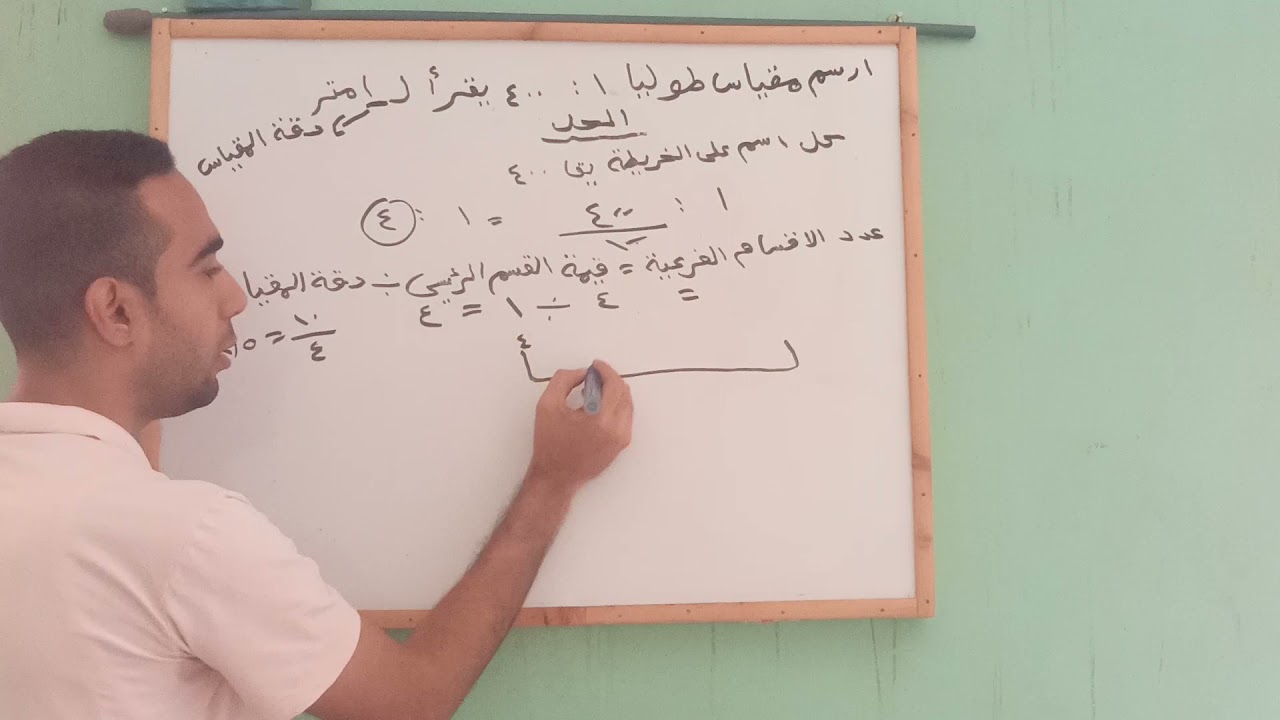 ارسم مقياسا طوليا ١ : ٤٠٠ يقرأ لـ ١ متر
دقة المقياس
الحل
كل ١ سم على الخريطة ٤٠٠
١ : ٤٠٠ / ١٠٠ = ١ : ٤
عدد الاقسام الفرعية = قيمة القسم الرئيسى ÷ دقة المقيا
= ٤ ÷ ١ = ٤
١٠ / ٤ =
٤